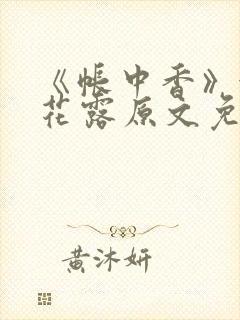 《帐中香》
花露原文免
黄沐妍